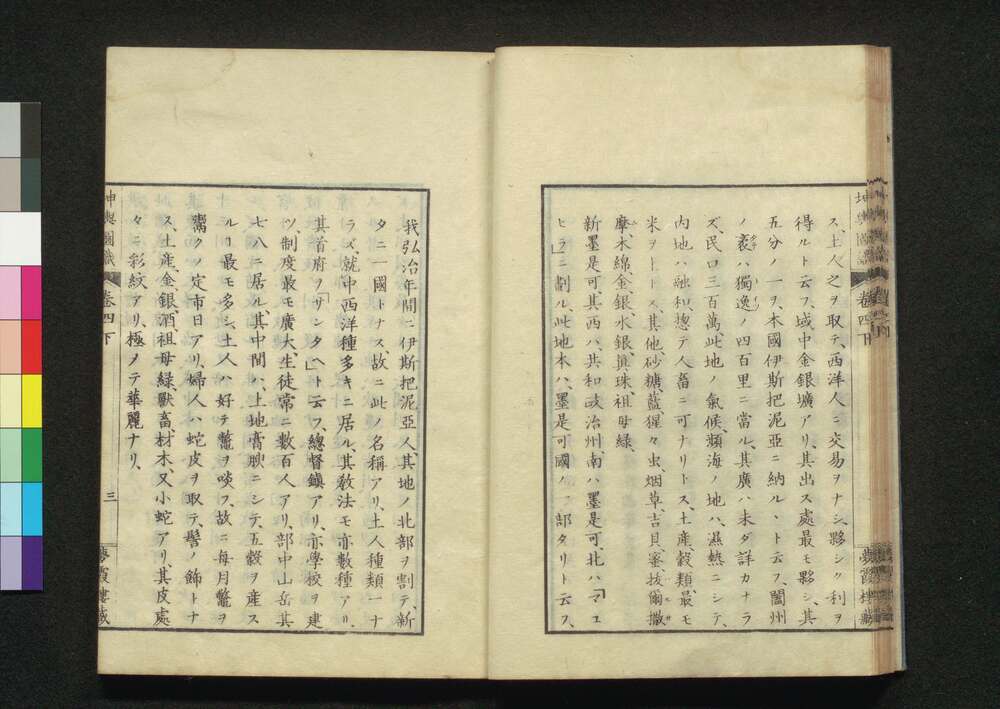 ス、土人之ヲ取テ、西洋人ニ交易ヲナシ、夥シク利ヲ
得ルト云フ、域中金銀壙アリ、其出ス處最モ夥シ、其
五分ノ一ヲ、本國伊斯把泥亞ニ納ル、ト云フ、闔州
ノ袤ハ獨逸ノ四百里ニ當ル、其廣ハ未タ詳カナラ
ズ、民口三百萬、此地ノ氣候、類海ノ地ハ、濕熱ニシテ、
内地ハ融和、揔テ人畜ニ可ナリトス、土産、穀類、最モ
米ヲ上トス、其他砂糖、藍、猩々虫、烟草、吉貝、蜜、拔爾撒
摩、木綿、金、銀、水銀、眞珠、祖母綠、
新墨是可其西ハ、共和政治州、南ハ墨是可、北ハ「マエ
ヒラ」ニ劃ル、此地本ハ、墨是可國ノ一部タリト云フ、
坤輿圖識
卷四下
夢霞樓藏
我弘治年間ニ、伊斯把泥亞人、其地ノ北部ヲ割テ、新
タニ一國トナス、故ニ此ノ名稱アリ、土人種類一ナ
ラズ、就中西洋種多キニ居ル、其敎法モ亦數種アリ、
其首府ヲ「サンタヘ」ト云フ、總督鎭アリ、亦學校ヲ建
ツ、制度最モ廣大、生徒常ニ數百人アリ、部中山岳其
七八ニ居ル、其中間ハ、土地膏腴ニシテ、五穀ヲ産ス
ルヿ最モ多シ、土人ハ好テ鼈ヲ啖フ、故ニ每月鼈ヲ
鬻クノ定市日アリ、婦人ハ蛇皮ヲ取テ、髻ノ飾トナ
ス、土産、金、銀、酒、祖母綠、獸畜、材木、又小蛇アリ、其皮處
々ニ彩紋アリ、極メテ華麗ナリ、
坤輿圖識
卷四下
三
夢霞樓藏